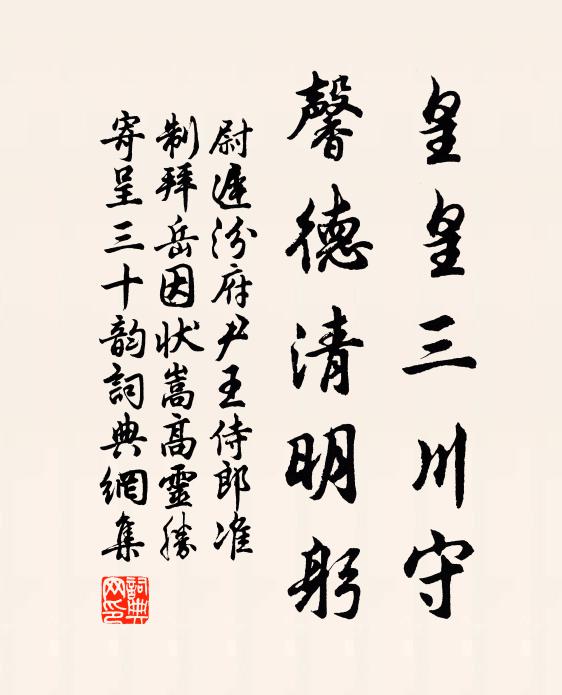 皇皇三川守
馨德清明躬
尉遲汾府尹王侍郎准
制拜岳因状嵩高靈勝
寄呈三十韵詞典網集
詞典网印